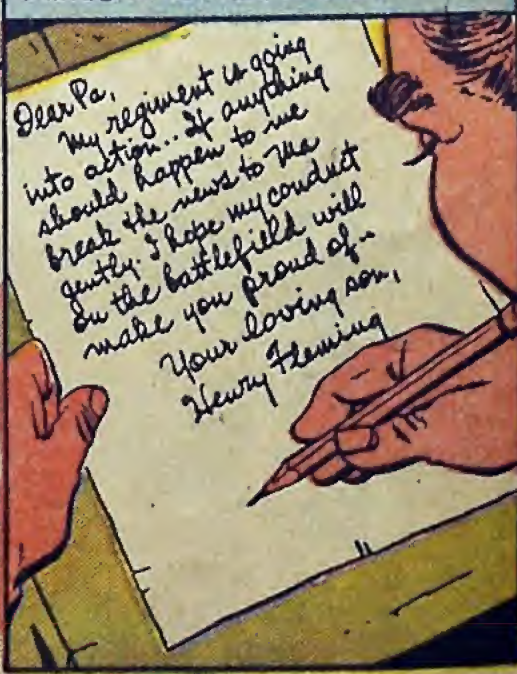 Dear Pa,
My regiment is going
into action.. If anything
should happen to me
break the news to Ma
gently. I hope my conduct
on the battlefield will
make you proud of..
Your loving son,
Henry Fleming